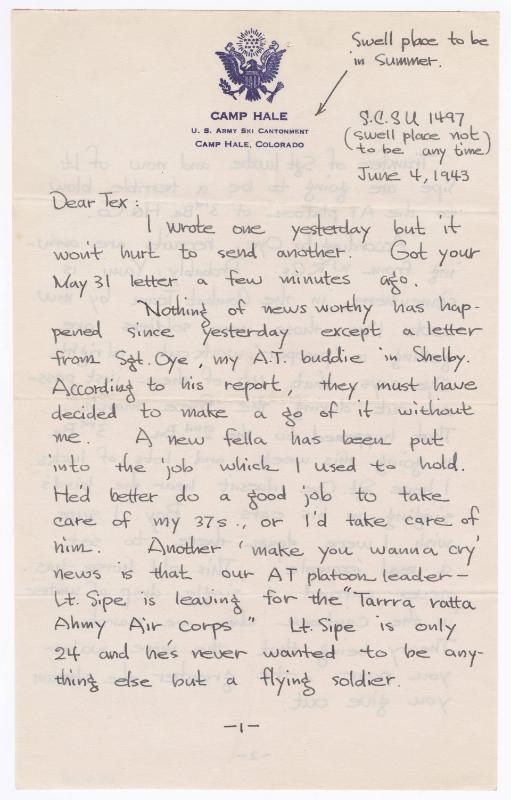 Swell place to be
in summer.
CAMP HALE
U. S. ARMY SKI CANTONMENT
CAMP HALE, COLORADO
S.C.S.U 1497
(swell place not
to be any time)
June 4, 1943
Dear Tex:
I wrote one yesterday but it
won't hurt to send another. Got your
May 31 letter a few minutes ago.
Nothing of news worthy has hap-
pened since yesterday except a letter
from Sgt. Oye, my A.T. buddie in Shelby.
According to his report, they must have
decided to make a go of it without
me. A new fella has been put
into the job which I used to hold.
He'd better do a good job to take
care of my 37s., or I'd take care of
him. Another 'make you wanna cry'
news is that our AT platoon leader—
Lt. Sipe is leaving for the "Tarrra ratta
Ahmy Air Corps" Lt. Sipe is only
24 and he's never wanted to be any-
thing else but a flying soldier.
—1—